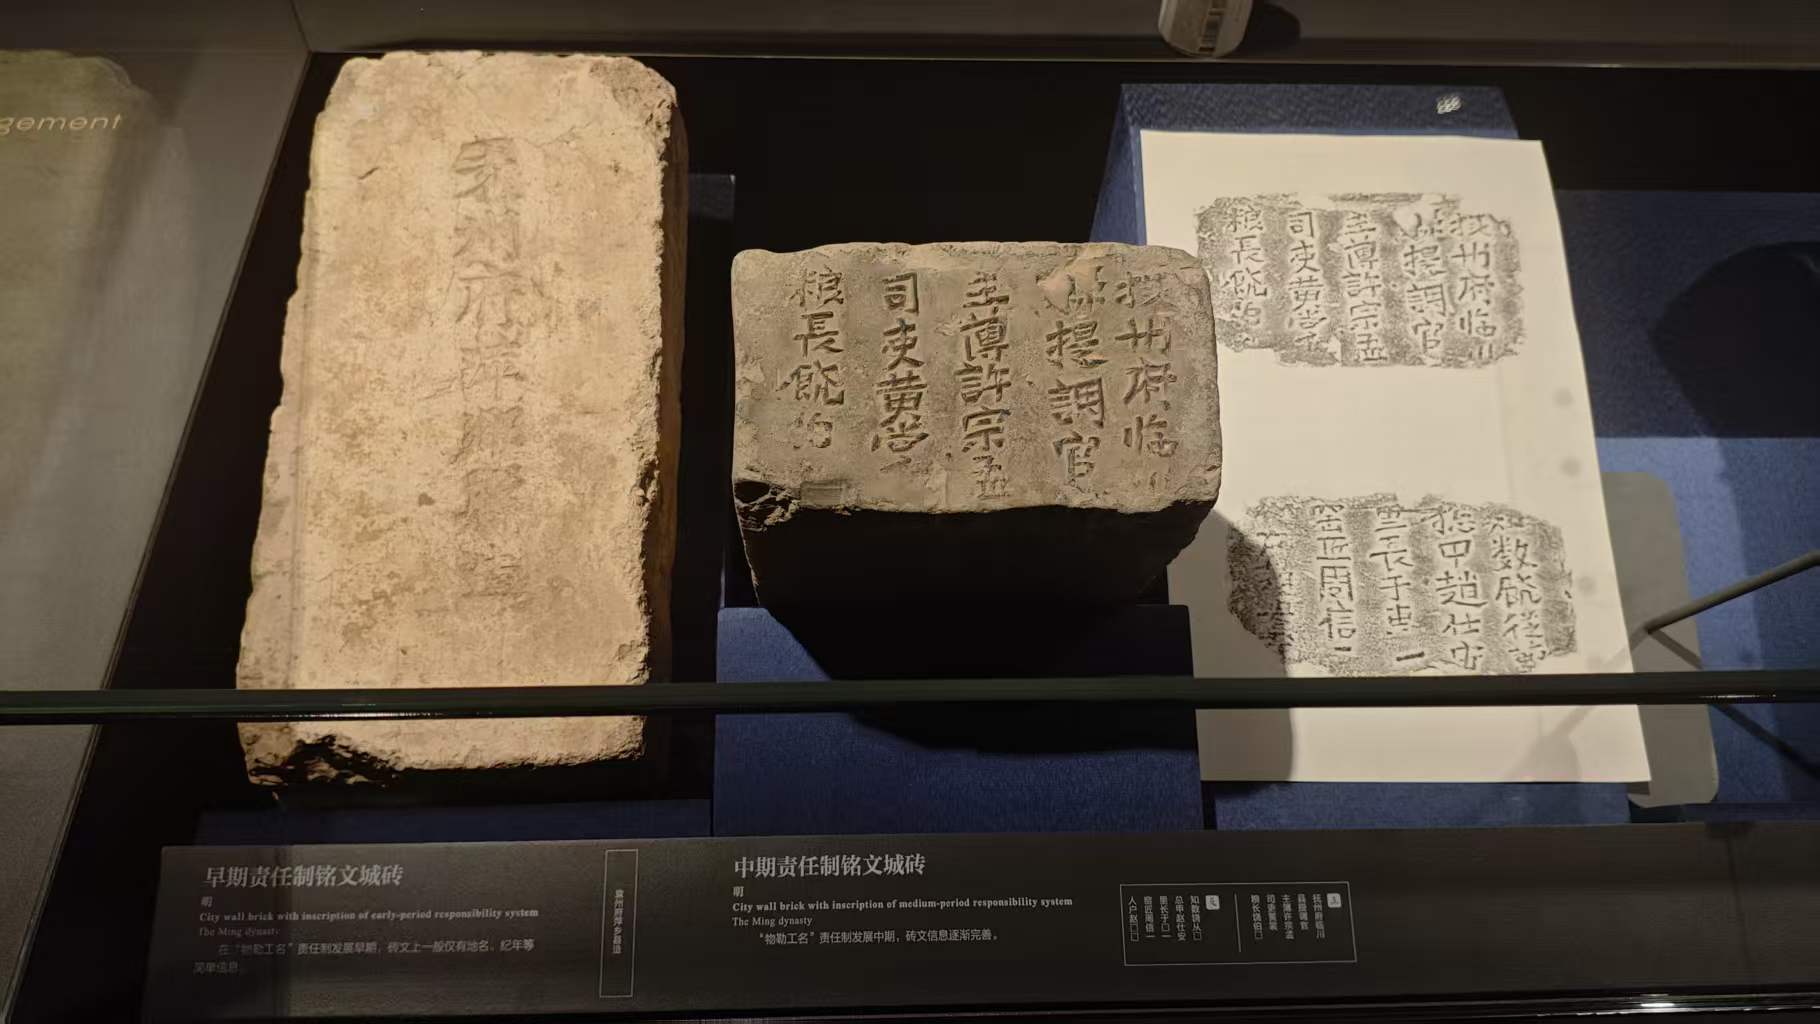 gement
袁州府萍鄉縣造
抚州府临川
縣提調官
主薄許宗孟
司吏黄尚
糧長饒
抚州府临川
縣提調官
主薄許宗孟
司吏黄尚
糧長饒
知数饒從
總甲趙仕安
里長于
窑匠周信一
早期责任制铭文城砖
明
City wall brick with inscription of early-period responsibility system
The Ming dynasty
在“物勒工名”责任制发展早期，砖文上一般仅有地名、纪年等
简单信息。
袁州府萍乡县造
中期责任制铭文城砖
明
City wall brick with inscription of medium-period responsibility system
The Ming dynasty
“物勒工名”责任制发展中期，砖文信息逐渐完善。
抚州府临川
县提调官
主簿许宗孟
司吏黄裳
粮长饶伯□
知数饶从□
总甲赵仕安
里长于□一
窑匠周信一
人户赵□□